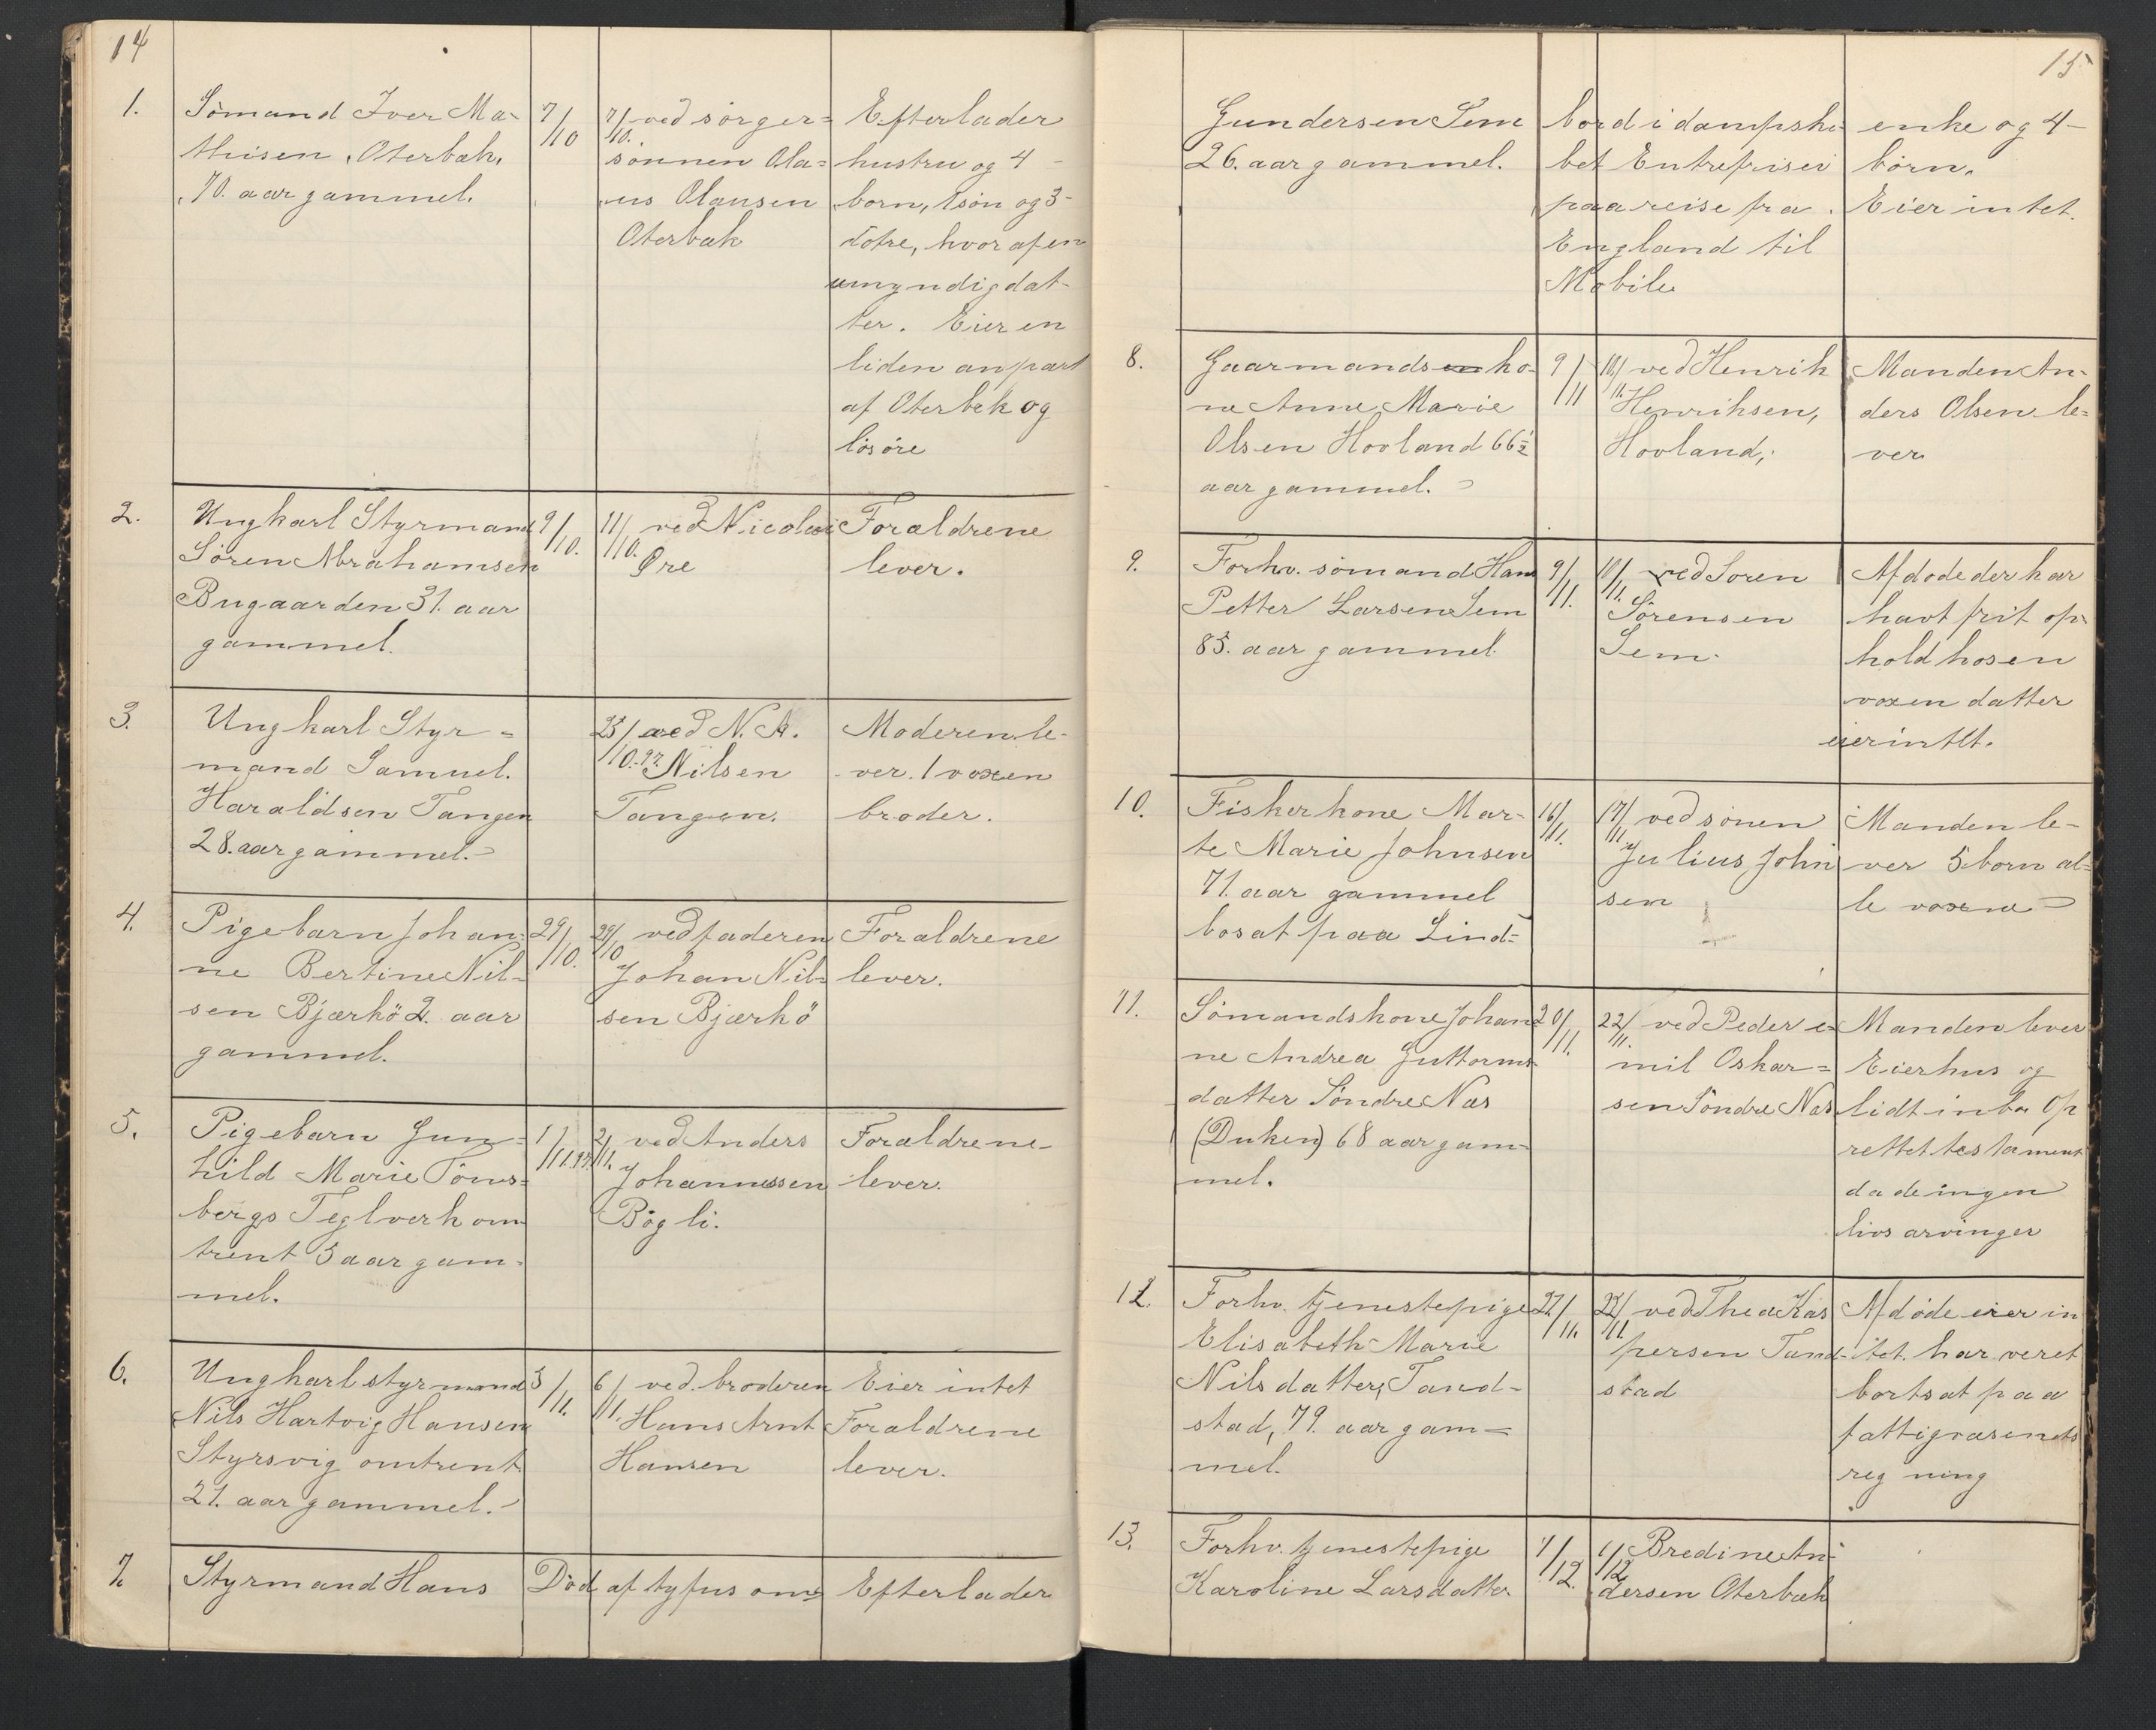 14
1.
Sömand Iver Ma-
thisen, Oterbæk,
70. aar gammel.
7/10
7/10. ved sørger=
sønnen Ola=
us Olausen
Oterbæk
Efterlader
hustru og 4
børn, 1 søn og 3-
døtre, hvoraf en
umyndig dat-
ter. Eier en
liden anpart
af Oterbek og
løsøre
2.
Ungkarl Styrmand
Sören Abrahamsen
Bugaarden 31. aar
gammel.
9/10.
11/10. ved Nicolai
Øre
Foraldrene
lever.
3.
Ungkarl Styr=
mand Samuel.
Haraldsen Tangen
28. aar gammel.-
25/10.97. ved N. A.
Nilsen
Tangen.
Moderen le-
ver. 1 voxen
broder.
4.
Pigebarn Johan-
ne Bertine Nil=
sen Bjærkö 2. aar
gammel.
29/10.
29/10 ved faderen
Johan Nil=
sen Bjærkö
Foraldrene
lever.
5.
Pigebarn Gun=
hild Marie Töns=
bergs Teglverk om-
trent 5 aar gam-
mel.
1/11.97.
2/11. ved Anders
Johannessen
Bøgli.
Foraldrene-
lever.
6.
Ungkarl styrmand
Nils Hartvig Hansen
Styrsvig omtrent
21. aar gammel.-
3/11.
6/11. ved. broderen
Hans Arnt
Hansen
Eier intet
Foraldrene
lever.
7.
Styrmand Hans
Död af tyfus om=
Efterlader
15
Gundersen Sem
26. aar gammel.
bord i dampski-
bet Entreprisei
paa reise fra
England til
Mobile
enke og 4-
börn.
Eier intet.
8.
Gaarmands ko-
ne Anne Marie
Olsen Hovland 66½
aar gammel.
9/11
10/11. ved Henrik
Henriksen,
Hovland,
Manden An-
ders Olsen le=
ver
9.
Forhv. sömand Hans
Petter Larsen Sem
85. aar gammel.
9/11.
10/11. ved Sören
Sörensen
Sem.
Afdöde der har
havt frit op-
hold hos en
voxen datter
eier intet.
10.
Fiskerkone Mar-
te Marie Johnsen
71. aar gammel
bosat paa Lind=
16/11.
17/11 ved sönen
Julius John
sen
Manden le-
ver 5 born al=
le voxne-
11.
Sömandskone Johan
ne Andrea Guttorms-
datter Söndre Næs
(Duken) 68 aar gam-
mel.
20/11.
22/11. ved Peder e-
mil Oskar=
sen Söndre Næs
Manden lever
Eier hus og
lidt inbo Op
rettet testament
da de ingen
livsarvinger
12.
Forhv. tjenestepige
Elisabeth Marie
Nilsdatter, Tand-
stad, 79. aar gam=
mel.
27/11.
27/11. ved Thea Kas
persen Tand-
stad
Afdöde eier in
tet. har veret
bortsat paa
fattigvæsenets
regning
13.
Forhv. tjenestepige
Karoline Larsdatter
1/12.
1/12 Bredine An-
dersen Oterbæk